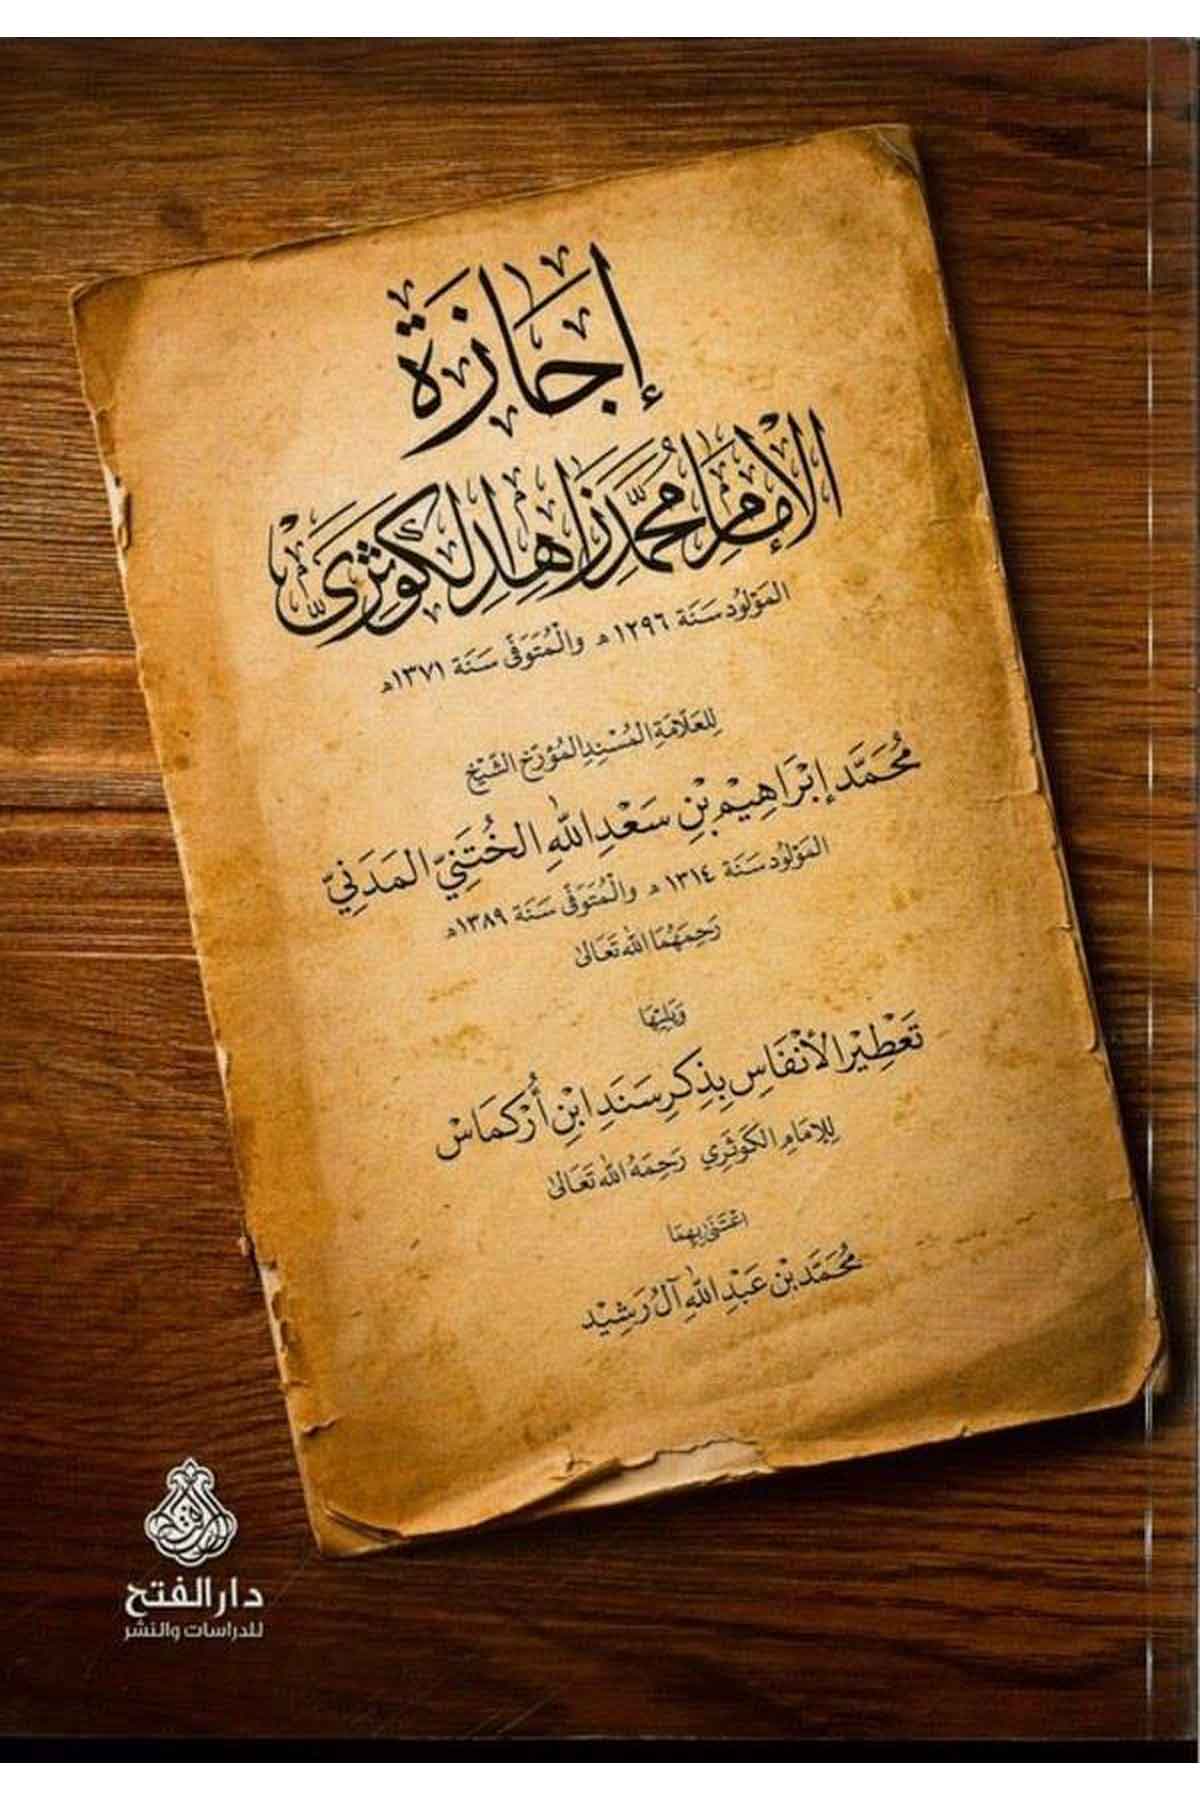 إجَازَة
الإمَامِ مُحَمَّد زَاهِد الكَوْثَرِيّ
المَوْلُود سَنَة ١٢٩٦ هـ والْمُتَوَفَّى سَنَة ١٣٧١ هـ
لِلعَلَّامَةِ المُسْنِدِ المُؤَرِّخِ الشَّيْخِ
مُحَمَّد إبْرَاهِيْم بْنِ سَعْدِ اللهِ الخُتَنِيِّ المَدَنِيّ
المَوْلُود سَنَة ١٣١٤ هـ والْمُتَوَفَّى سَنَة ١٣٨٩ هـ
رَحِمَهُمَا اللهُ تَعَالَى
وَيَلِيْهَا
تَعْطِيْر الأَنْفَاسِ بِذِكرِ سَنَدِ ابْنِ أُرْكمَاسْ
لِلإمَامِ الكَوْثَرِي رَحِمَهُ اللهُ تَعَالَى
اعْتَنَى بِهِمَا
مُحَمَّد بْن عَبْدِ اللهِ آلُ رَشِيْد
دار الفتح
للدراسات والنشر